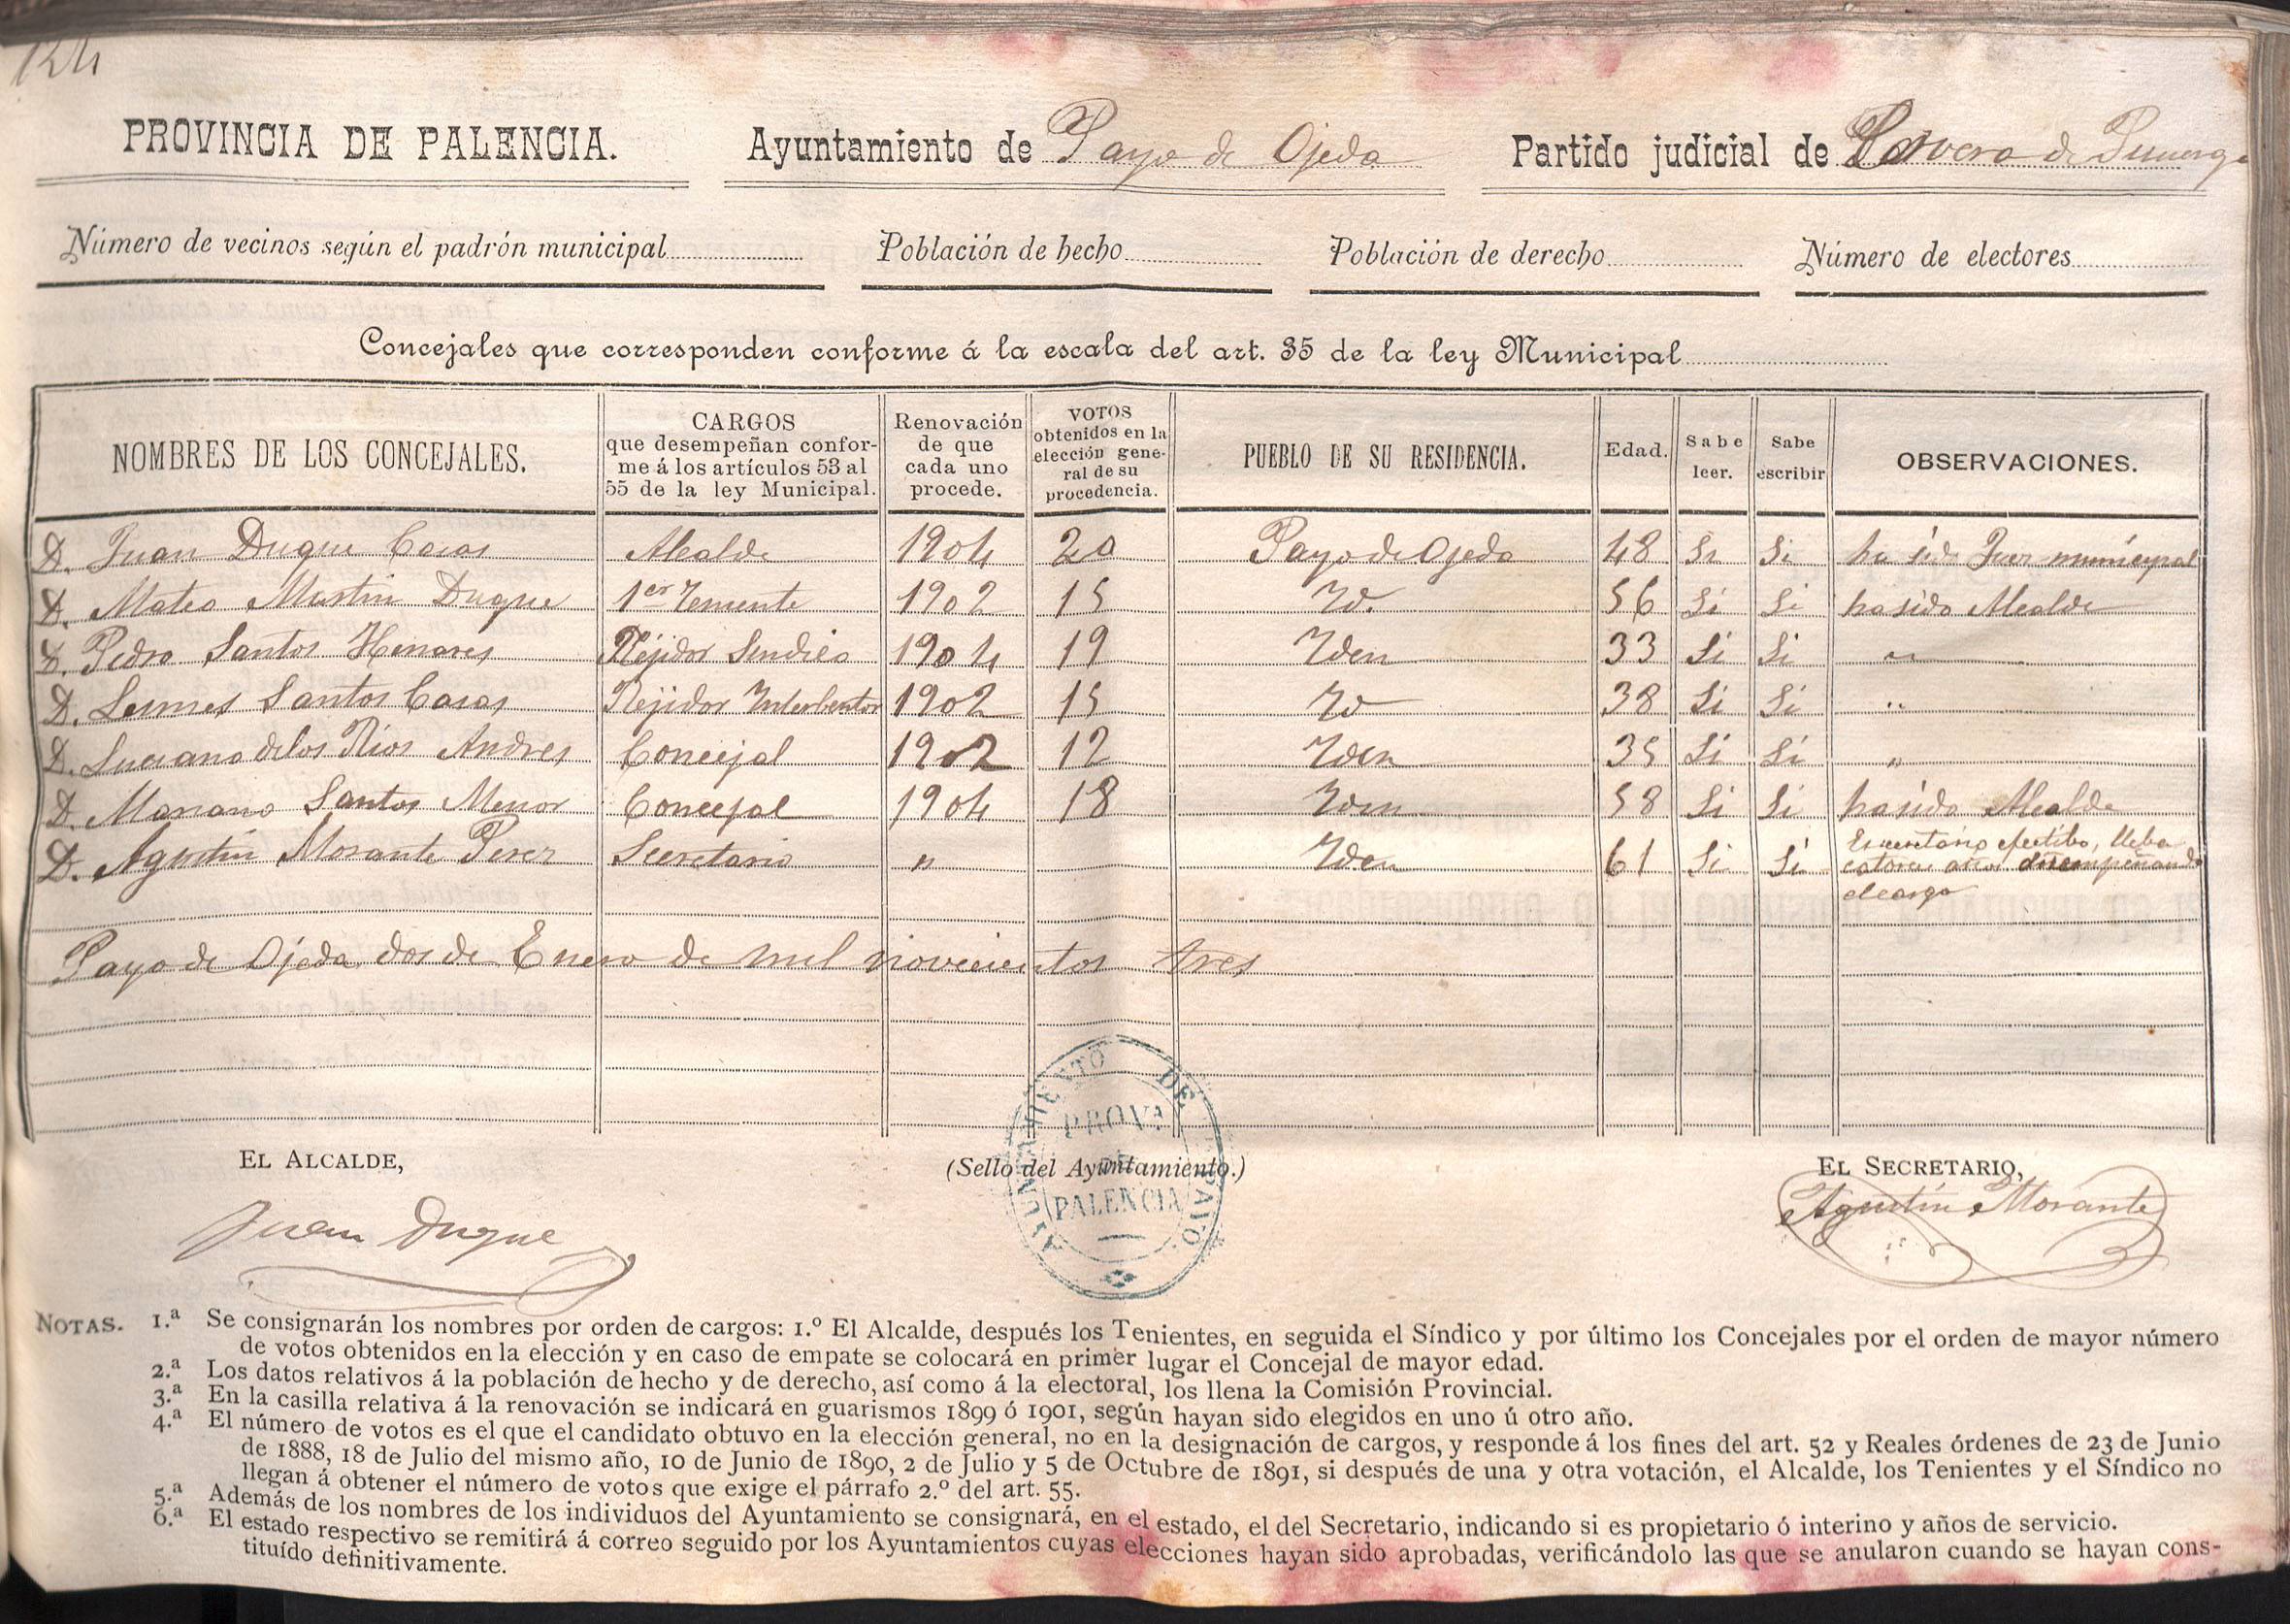 124
PROVINCIA DE PALENCIA. Ayuntamiento de Payo de Ojeda Partido judicial de Cervera de
Número de vecinos según el padrón municipal Población de hecho Población de derecho Número de electores
Concejales que corresponden conforme á la escala del art. 35 de la ley Municipal
NOMBRES DE LOS CONCEJALES. CARGOS que desempeñan conforme á los artículos 53 al 55 de la ley Municipal. Renovación de que cada uno procede. VOTOS obtenidos en la elección general de su procedencia. PUEBLO DE SU RESIDENCIA. Edad. Sabe leer. Sabe escribir OBSERVACIONES.
D. Juan Duque Casas Alcalde 1904 20 Payo de Ojeda 48 Si Si ha sido Juez municipal
D. Mateo Martin Duque 1er Teniente 1902 15 Id. 56 Si Si ha sido Alcalde
D. Pedro Santos Henares Rejidor Sindico 1904 19 Iden 33 Si Si "
D. Lesmes Santos Casas Rejidor Interbentor 1902 15 Id 38 Si Si "
D. Luciano de los Rios Andres Concejal 1902 12 Iden 35 Si Si "
D. Mariano Santos Menor Concejal 1904 18 Iden 58 Si Si ha sido Alcalde
D. Agustin Morante Perez Secretario " Iden 61 Si Si Es efectibo, lleba
catorce años desempeñando
el cargo
Payo de Ojeda dos de Enero de mil novecientos tres
EL ALCALDE, (Sello del Ayuntamiento.) EL SECRETARIO,
Juan Duque
AYUNTAMIENTO DE PAYO
PROVA DE PALENCIA
Agustin Morante
NOTAS. 1.ª Se consignarán los nombres por orden de cargos: 1.º El Alcalde, después los Tenientes, en seguida el Síndico y por último los Concejales por el orden de mayor número
de votos obtenidos en la elección y en caso de empate se colocará en primer lugar el Concejal de mayor edad.
2.ª Los datos relativos á la población de hecho y de derecho, así como á la electoral, los llena la Comisión Provincial.
3.ª En la casilla relativa á la renovación se indicará en guarismos 1899 ó 1901, según hayan sido elegidos en uno ú otro año.
4.ª El número de votos es el que el candidato obtuvo en la elección general, no en la designación de cargos, y responde á los fines del art. 52 y Reales órdenes de 23 de Junio
de 1888, 18 de Julio del mismo año, 10 de Junio de 1890, 2 de Julio y 5 de Octubre de 1891, si después de una y otra votación, el Alcalde, los Tenientes y el Síndico no
llegan á obtener el número de votos que exige el párrafo 2.º del art. 55.
5.ª Además de los nombres de los individuos del Ayuntamiento se consignará, en el estado, el del Secretario, indicando si es propietario ó interino y años de servicio.
6.ª El estado respectivo se remitirá á correo seguido por los Ayuntamientos cuyas elecciones hayan sido aprobadas, verificándolo las que se anularon cuando se hayan cons-
tituído definitivamente.